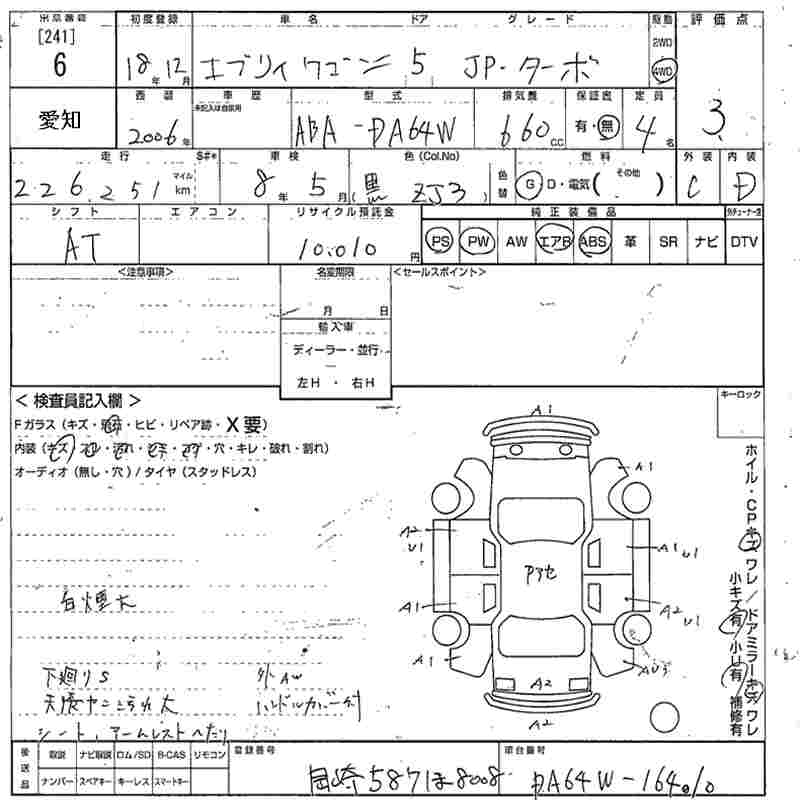 出品番号 初度登録 車名 ドア グレード 駆動 評価点
[241] 6 18年 12月 エブリィワゴン 5 JP・ターボ 2WD 4WD
西暦 車歴 型式 排気量 保証書 定員
未記入は自家用
愛知 2006年 ABA-DA64W 660cc 有・無 4名 3
走行 S#* 車検 色(Col.No) 色替 燃料 外装 内装
226,251 マイル km 8年 5月 (黒 ZJ3) G D・電気( その他 ) C D
シフト エアコン リサイクル預託金 純正装備品
AT 10,010円 PS PW AW エアB ABS 革 SR ナビ DTV
<注意事項> 名変期限 <セールスポイント>
月 日
輸入車
ディーラー・並行
左H ・ 右H
<検査員記入欄> キーロック
Fガラス (キズ・飛石・ヒビ・リペア跡・X要)
内装 (キズ・ ・汚れ・ ・ ・穴・キレ・破れ・割れ)
オーディオ (無し・穴) / タイヤ (スタッドレス)
A1
A1
A2 U1
A1 U1
Pアセ
A1
A2 U1
A1
A2
A2
白煙大
下廻りS 外AW
天張ヤニ 大 ハンドルカバー付
シート、アームレストへたり
ホイル・CPキズ ワレ / ドアミラーキズ ワレ
小キズ有 / 小U有 補修有
後送品 取説 ナビ取説 ロム/SD B-CAS リモコン 登録番号 車台番号
ナンバー スペアキー キーレス スマートキー 岡崎 587 ほ 8008 DA64W-164010